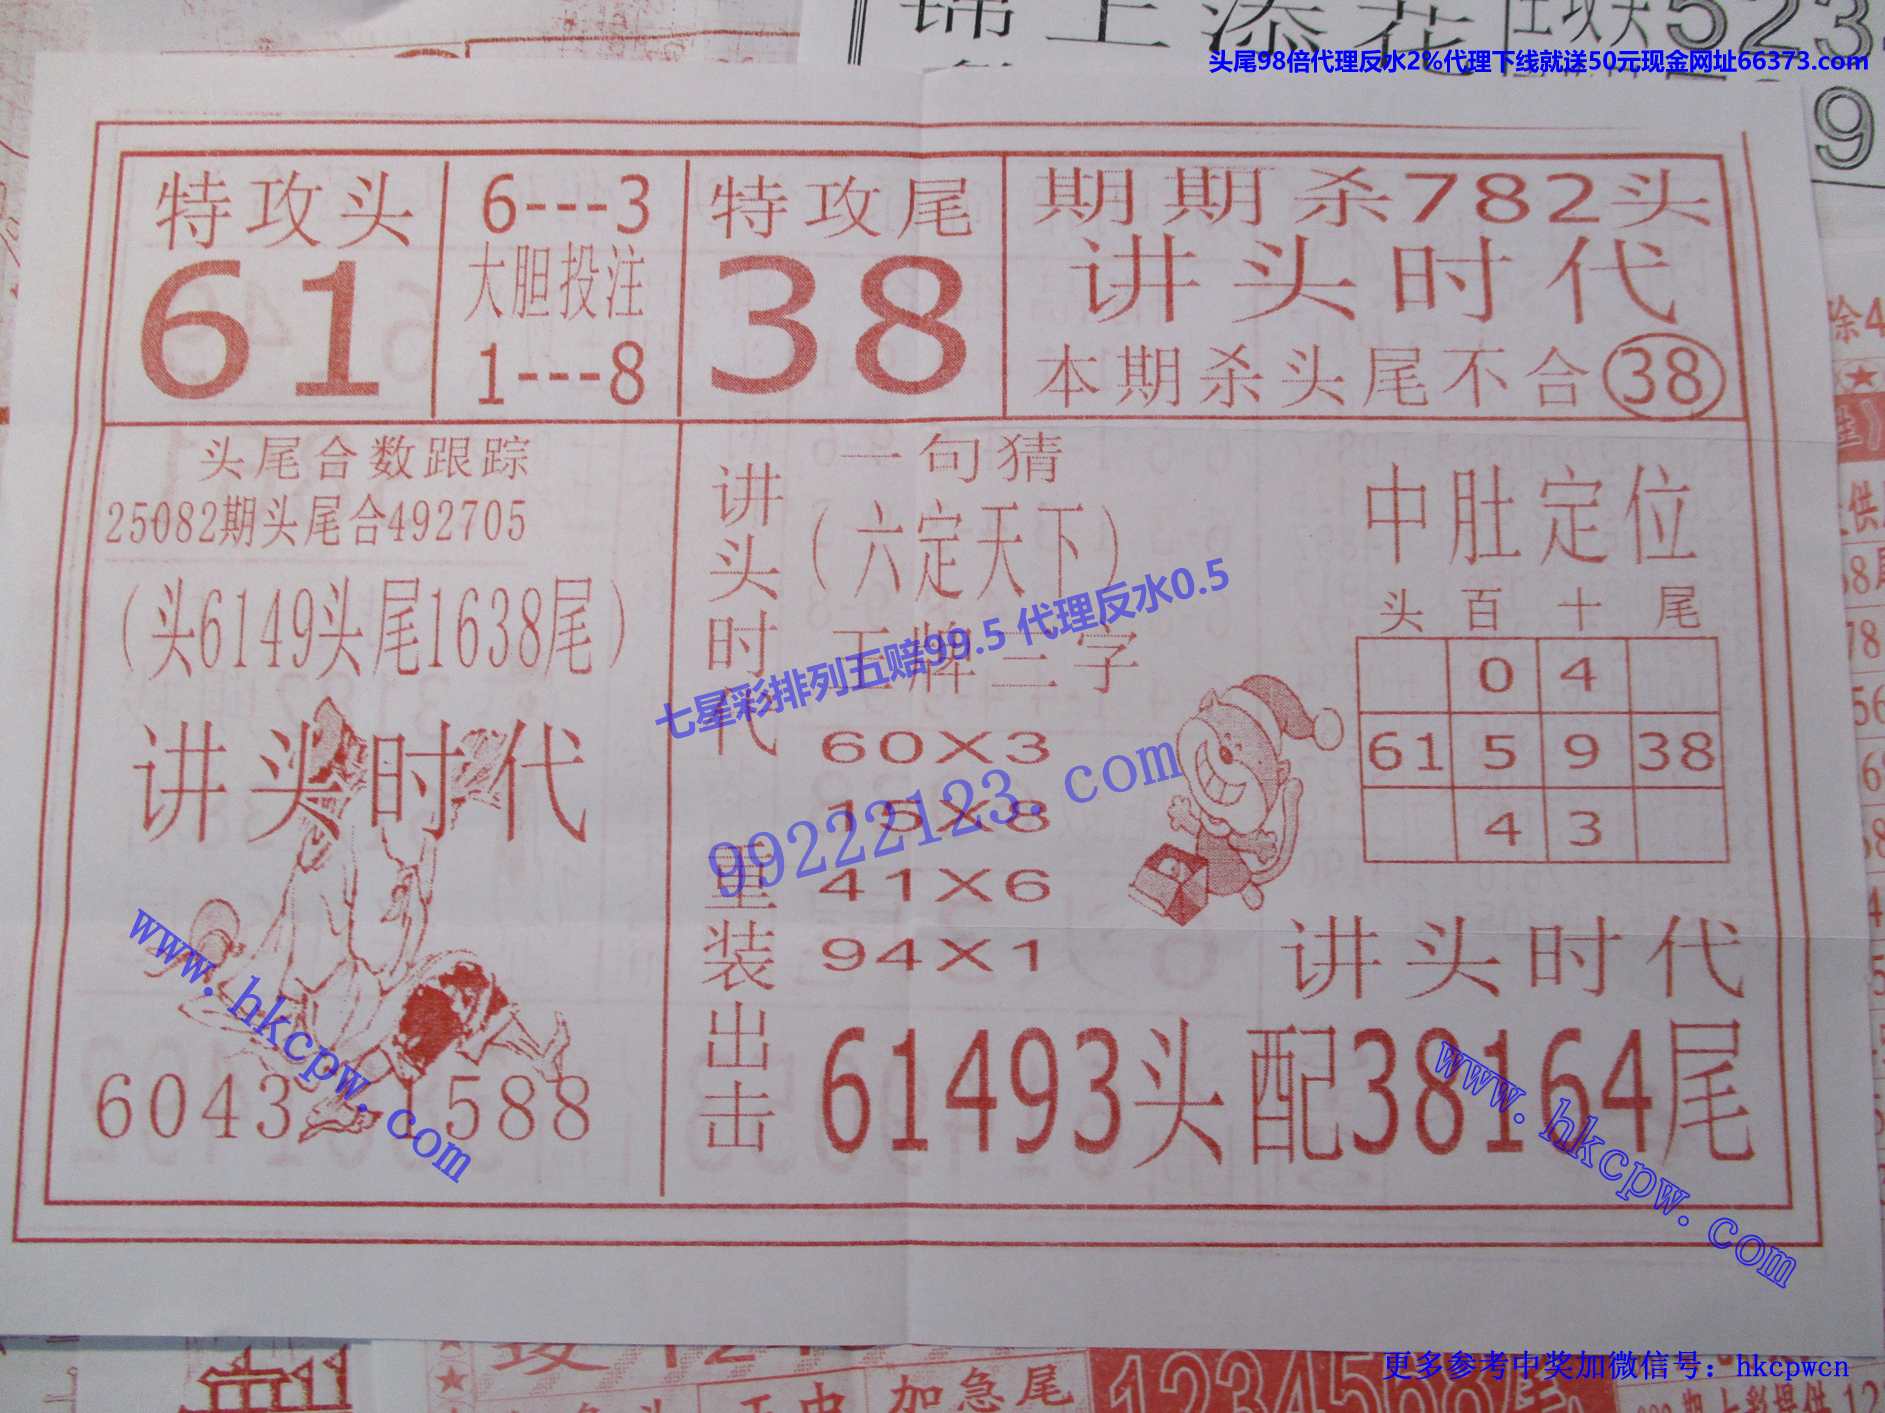 锦上添花
头尾98倍代理反水2%代理下线就送50元现金网址66373.com
特攻头
61
6---3
大胆投注
1---8
特攻尾
38
期期杀782头
讲头时代
本期杀头尾不合38
头尾合数跟踪
25082期头尾合492705
(头6149头尾1638尾)
讲头时代
6043 1588
讲头时代
重装出击
一句猜
(六定天下)
王牌三字
60X3
15X8
41X6
94X1
中肚定位
头 百 十 尾
0 4
61 5 9 38
4 3
讲头时代
61493头配38164尾
七星彩排列五赔99.5 代理反水0.5
99222123.com
www.hkcpw.com
www.hkcpw.com
加急尾
更多参考中奖加微信号：hkcpwcn